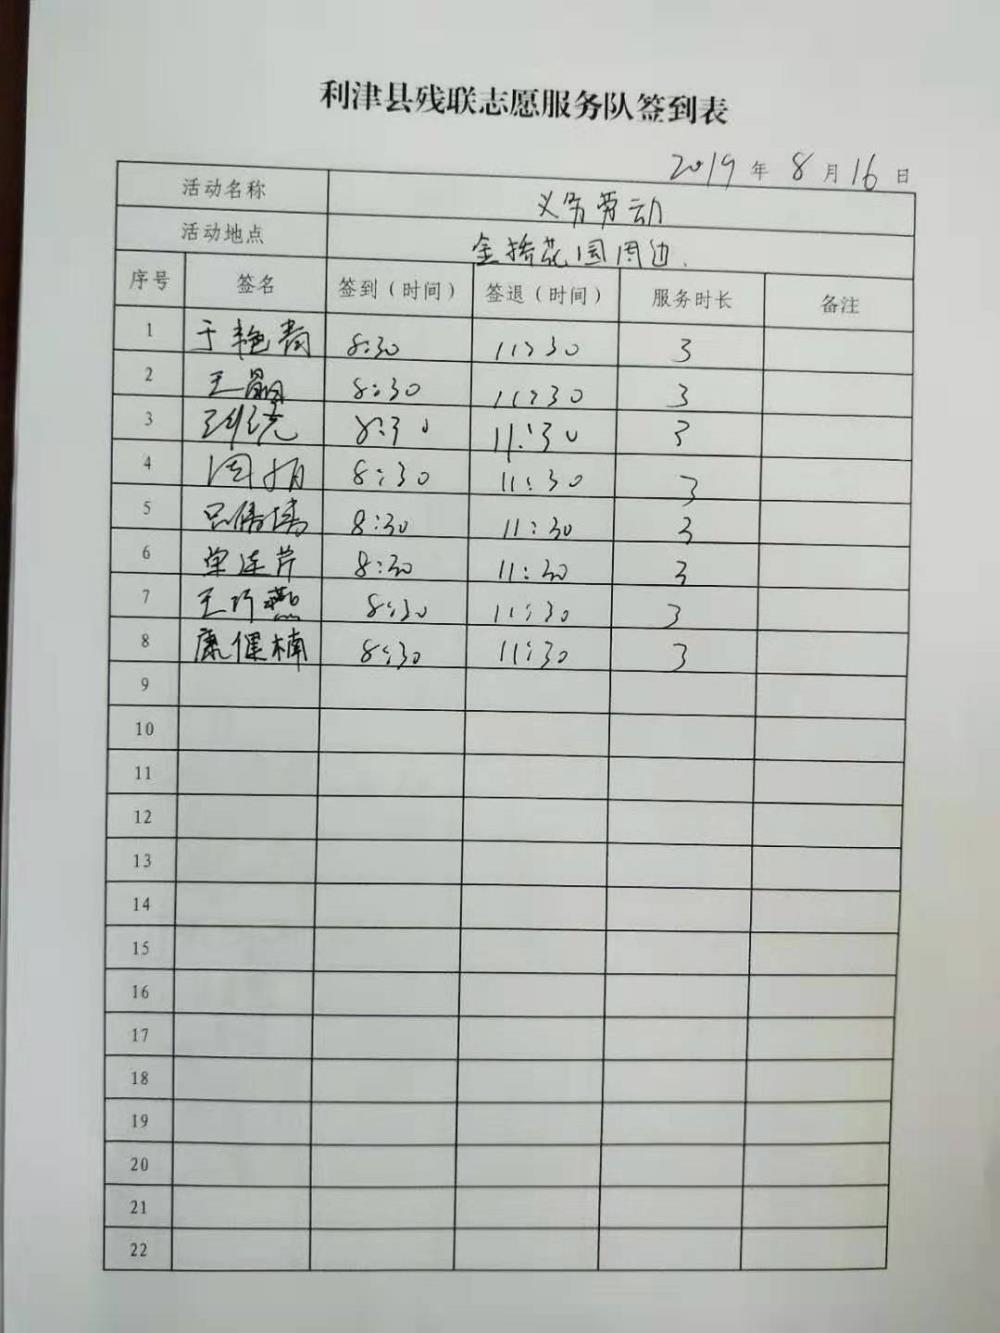 利津县残联志愿服务队签到表
2019年8月16日
活动名称 义务劳动
活动地点 金桥花园周边.
序号 签名 签到（时间） 签退（时间） 服务时长 备注
1 于艳青 8:30 11:30 3
2 王 8:30 11:30 3
3 8:30 11:30 3
4 周娟 8:30 11:30 3
5 吕倩倩 8:30 11:30 3
6 单连芹 8:30 11:30 3
7 王巧燕 8:30 11:30 3
8 康健楠 8:30 11:30 3
9
10
11
12
13
14
15
16
17
18
19
20
21
22